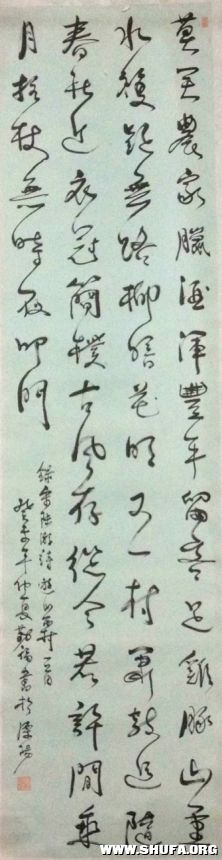 莫笑農家臘酒渾豐年留客足雞豚山重
水複疑無路柳暗花明又一村簫鼓追隨
春社近衣冠簡樸古風存從今若許閒乘
月拄杖無時夜叩門
錄宋陸游詩遊山西村一首
癸未年仲夏
書於深
WWW.SHUFA.ORG